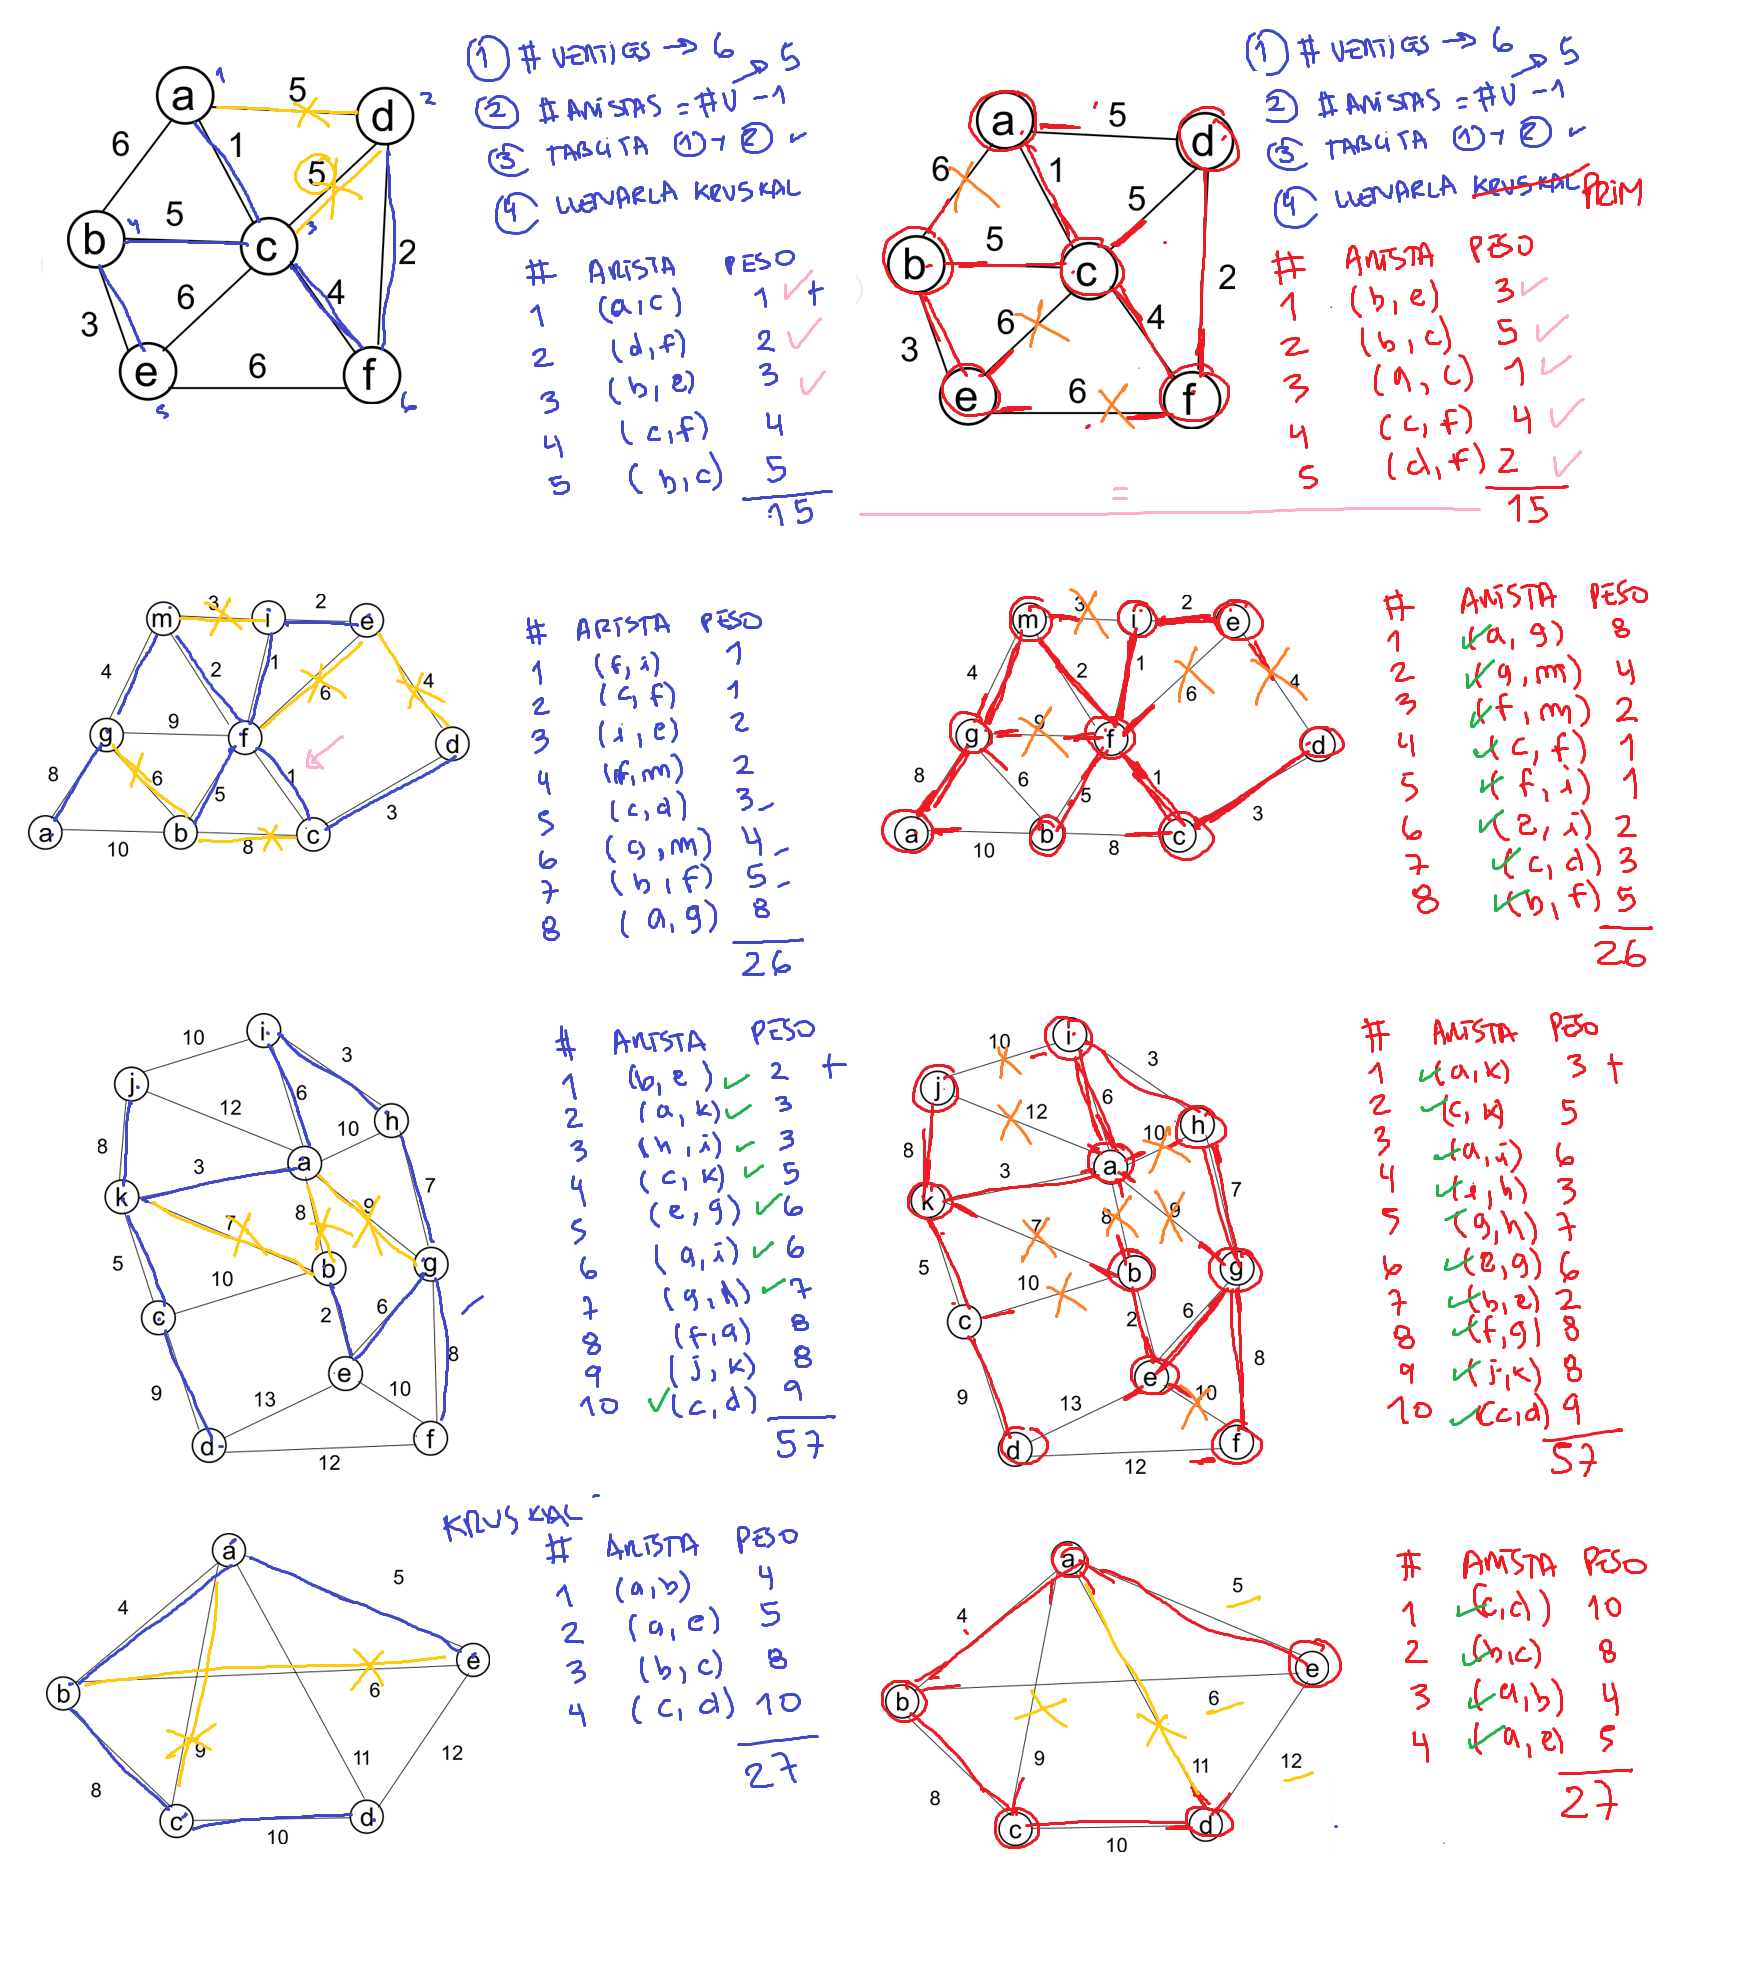 ① # VERTICES → 6
② # ARISTAS = #V - 1 → 5
③ TABLITA ① + ② ✓
④ LLENARLA KRUSKAL
# ARISTA PESO
1 (a,c) 1 ✓ +
2 (d,f) 2 ✓
3 (b,e) 3 ✓
4 (c,f) 4
5 (b,c) 5
15
a 1
d 2
c 3
b 4
e 5
f 6
5
6
1
5
5
2
6
4
3
6
① # VERTICES → 6
② # ARISTAS = #V - 1 → 5
③ TABLITA ① + ② ✓
④ LLENARLA KRUSKAL PRIM
# ARISTA PESO
1 (b,e) 3 ✓
2 (b,c) 5 ✓
3 (a,c) 1 ✓
4 (c,f) 4 ✓
5 (d,f) 2 ✓
15
=
a
d
b
c
e
f
5
6
1
5
5
2
6
4
3
6
m 3 i 2 e
4 2 1 6 4
g 9 f d
8 6 5 1 3
a 10 b 8 c
# ARISTA PESO
1 (f,i) 1
2 (c,f) 1
3 (i,e) 2
4 (f,m) 2
5 (c,d) 3
6 (g,m) 4
7 (b,f) 5
8 (a,g) 8
26
m 3 i 2 e
4 2 1 6 4
g 9 f d
8 6 5 1 3
a 10 b 8 c
# ARISTA PESO
1 ✓(a,g) 8
2 ✓(g,m) 4
3 ✓(f,m) 2
4 ✓(c,f) 1
5 ✓(f,i) 1
6 ✓(e,i) 2
7 ✓(c,d) 3
8 ✓(b,f) 5
26
10 i
j 3
12 6 10 h
8 3 a
k 7 8 9 7
5 10 b g
c 2 6
9 e 8
13 10
d 12 f
# ARISTA PESO
1 (b,e) ✓ 2 +
2 (a,k) ✓ 3
3 (h,i) ✓ 3
4 (c,k) ✓ 5
5 (e,g) ✓ 6
6 (a,i) ✓ 6
7 (g,h) ✓ 7
8 (f,g) 8
9 (j,k) 8
10 ✓(c,d) 9
57
10 i
j 3
12 6 10 h
8 3 a
k 7 8 9 7
5 10 b g
c 2 6
9 e 8
13 10
d 12 f
# ARISTA PESO
1 ✓(a,k) 3 +
2 ✓(c,k) 5
3 ✓(a,i) 6
4 ✓(i,h) 3
5 ✓(g,h) 7
6 ✓(e,g) 6
7 ✓(b,e) 2
8 ✓(f,g) 8
9 ✓(j,k) 8
10 ✓(c,d) 9
57
KRUSKAL
# ARISTA PESO
1 (a,b) 4
2 (a,e) 5
3 (b,c) 8
4 (c,d) 10
27
a
4 5
b 6 e
9 11 12
8 c 10 d
a
4 5
b 6 e
9 11 12
8 c 10 d
# ARISTA PESO
1 ✓(c,d) 10
2 ✓(b,c) 8
3 ✓(a,b) 4
4 ✓(a,e) 5
27